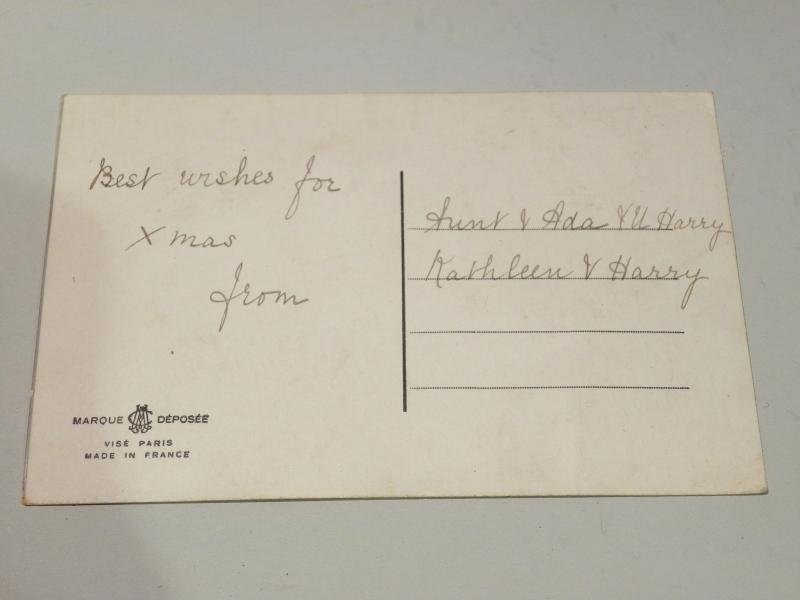 Best wishes for
Xmas
from
Aunt & Ada & U Harry
Kathleen & Harry
MARQUE DÉPOSÉE
VISÉ PARIS
MADE IN FRANCE